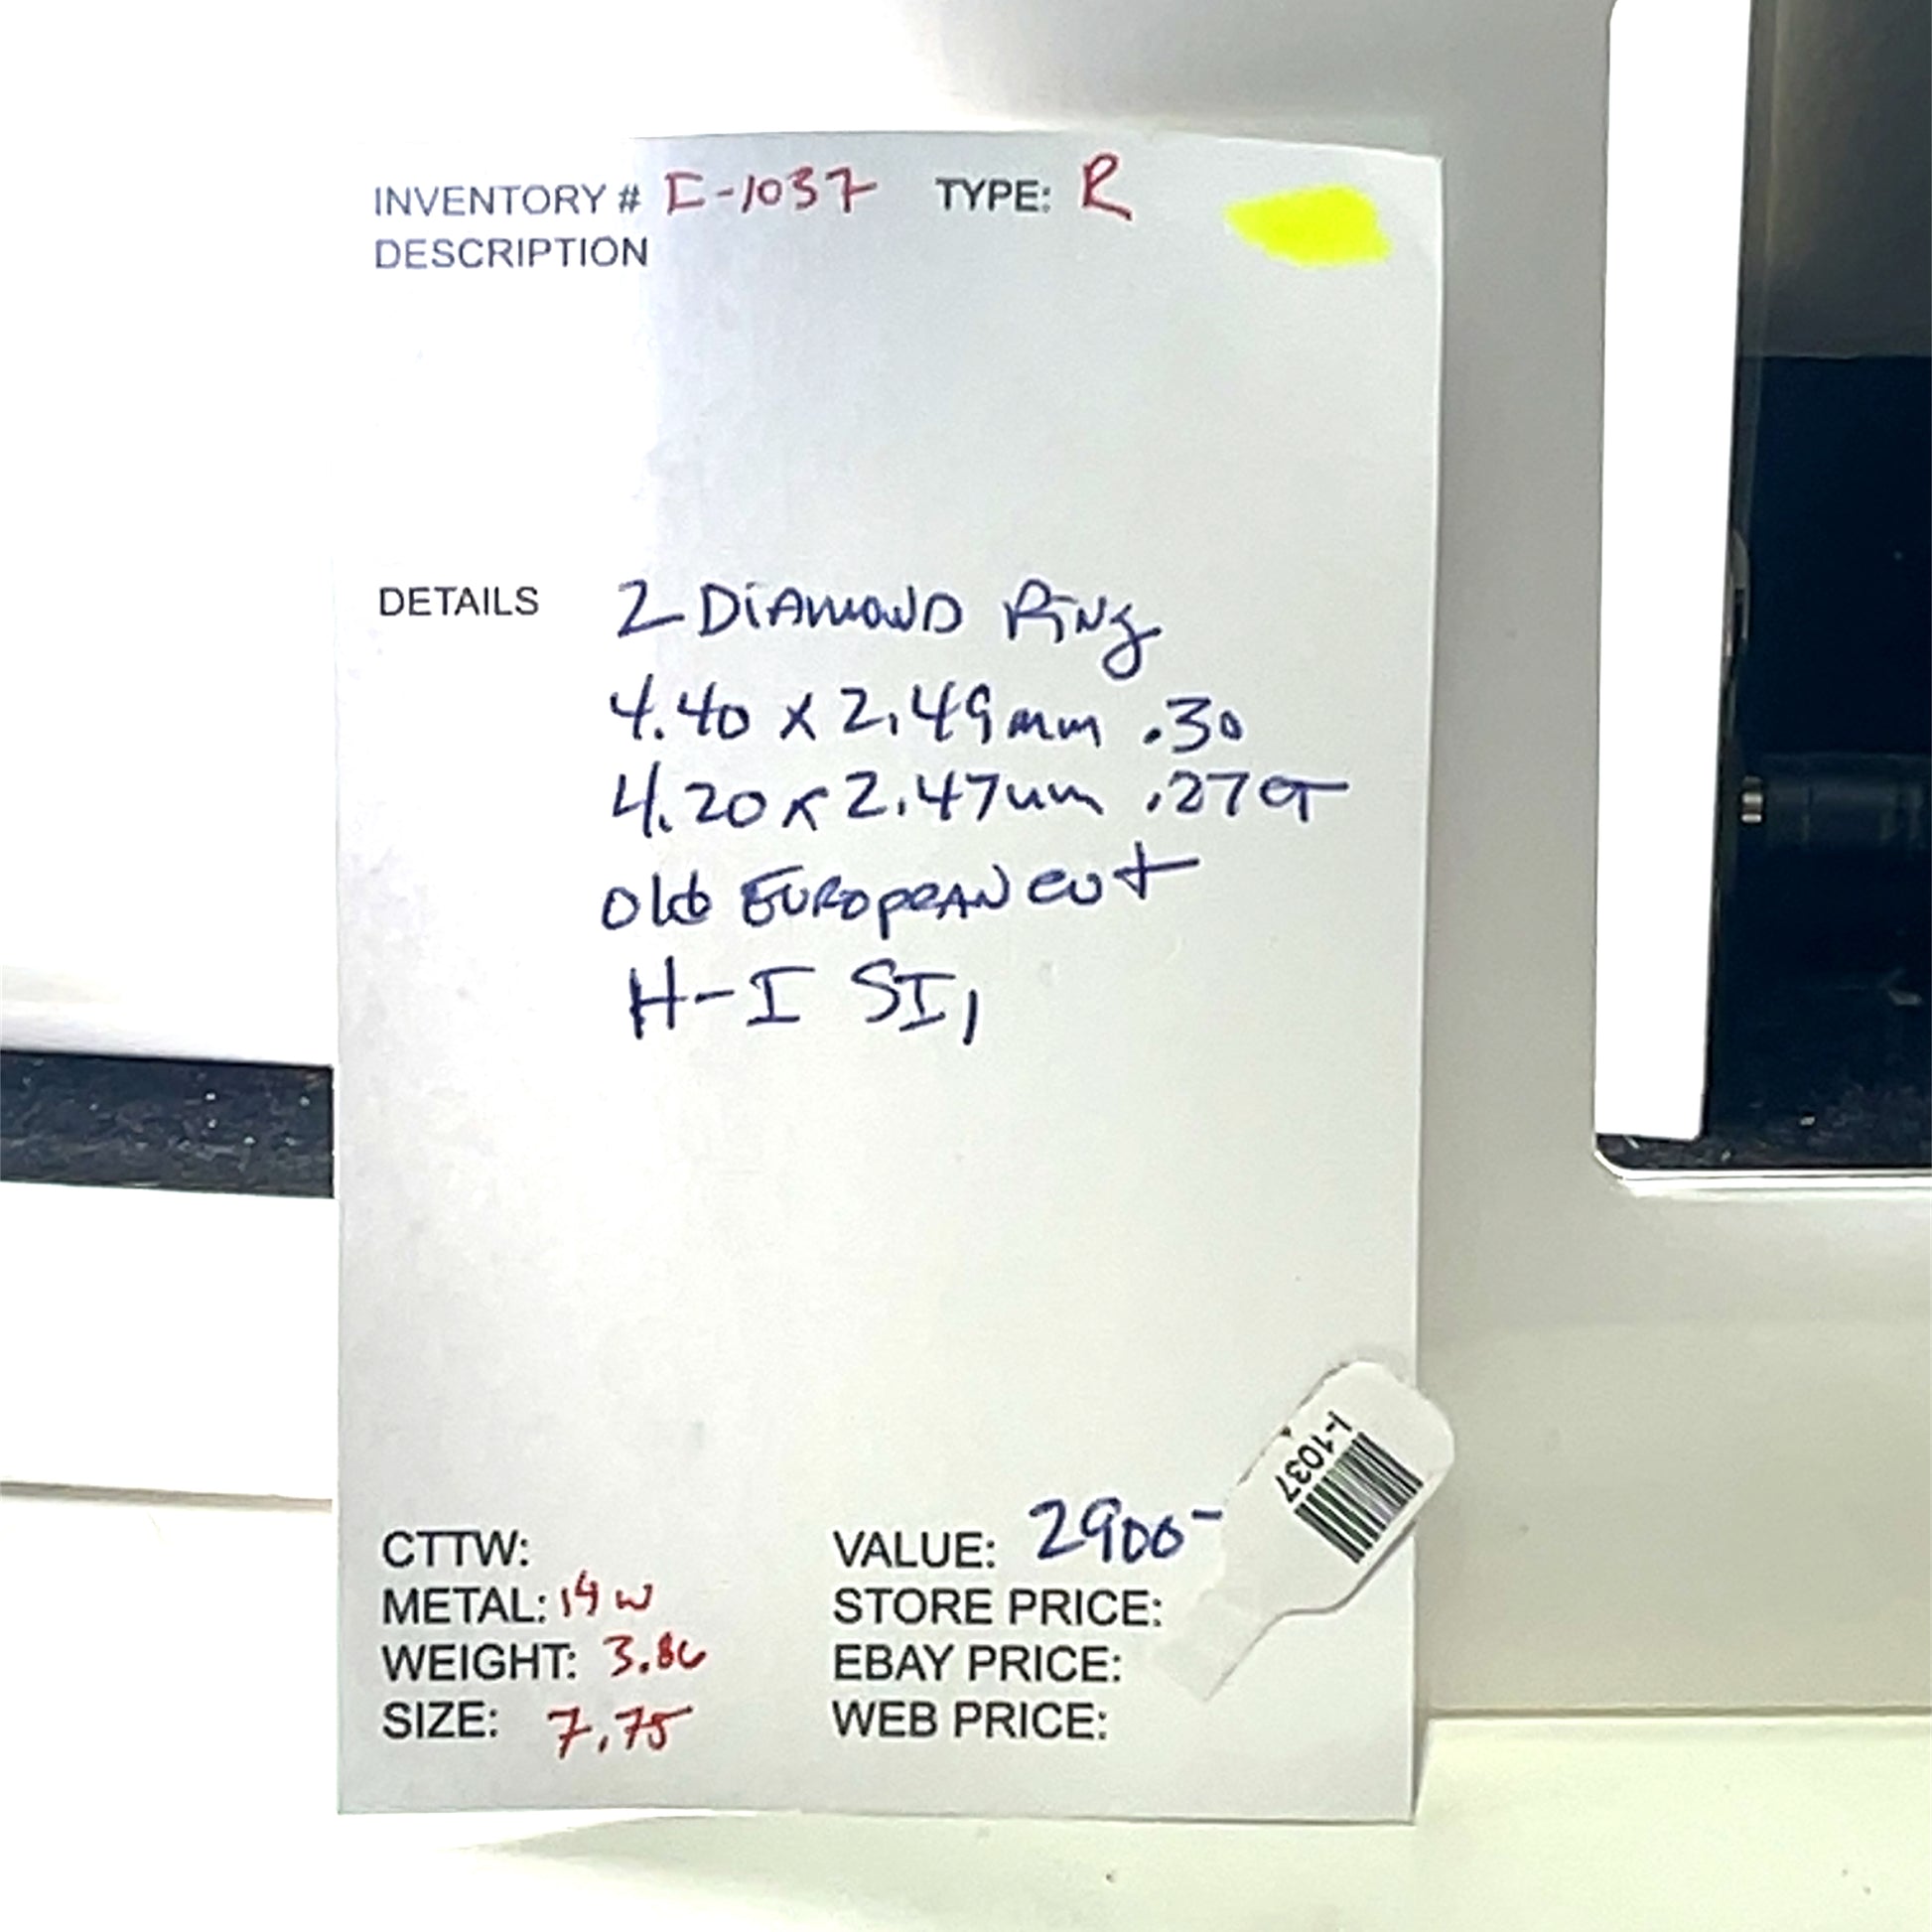 INVENTORY # I-1037 TYPE: R
DESCRIPTION
DETAILS 2 DIAMOND RING
4.40 x 2.49mm .30
4.20 x 2.47mm .27 CT
OLD EUROPEAN CUT
H-I SI1
I-1037
CTTW:
METAL: 14 W
WEIGHT: 3.86
SIZE: 7.75
VALUE: 2900-
STORE PRICE:
EBAY PRICE:
WEB PRICE: